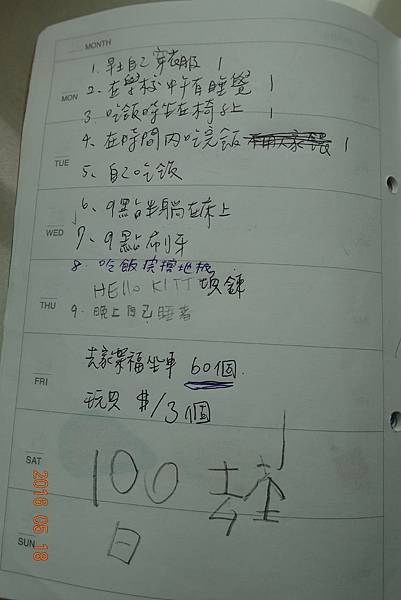 MONTH
1. 早上自己穿衣服 1
MON
2. 在學校中午有睡覺 1
3. 吃飯時坐在椅子上 1
4. 在時間內吃完飯 1
TUE
5、自己吃飯
6、9點半躺在床上
WED
7、9點刷牙
8. 吃飯擦擦地板
HELLO KITTY項鍊
THU
9. 晚上自己睡著
去家樂福坐車 60個.
FRI
玩具 $/3個
SAT
100
SUN
2016 05 18